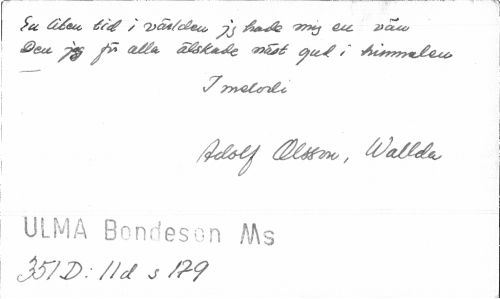 En liten tid i världen jg hade mig en vän
Den jg för alla älskade näst gud i himmelen
—
I melodi
Adolf Olsson, Wallda
ULMA Bondeson Ms
351 D: 11 d s 179